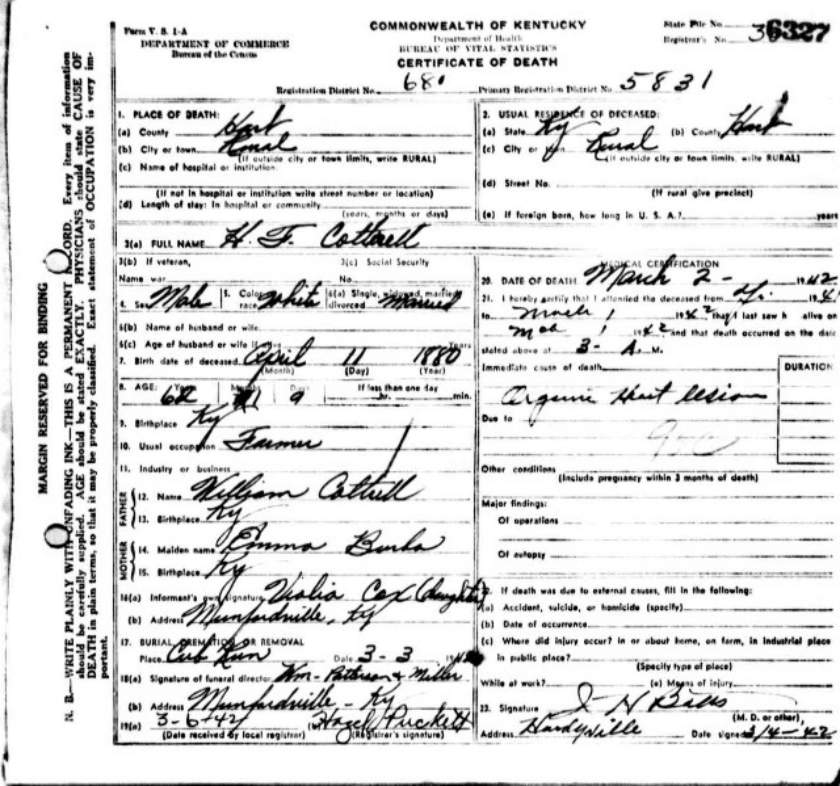 Form V. S. 1-A
DEPARTMENT OF COMMERCE
Bureau of the Census
COMMONWEALTH OF KENTUCKY
Department of Health
BUREAU OF VITAL STATISTICS
CERTIFICATE OF DEATH
State File No. 36327
Registrar's No.
Registration District No. 680 Primary Registration District No. 5831
MARGIN RESERVED FOR BINDING
N. B.—WRITE PLAINLY WITH UNFADING INK—THIS IS A PERMANENT RECORD. Every item of information
should be carefully supplied. AGE should be stated EXACTLY. PHYSICIANS should state CAUSE OF
DEATH in plain terms, so that it may be properly classified. Exact statement of OCCUPATION is very im-
portant.
1. PLACE OF DEATH:
(a) County Hart
(b) City or town Rural
(If outside city or town limits, write RURAL)
(c) Name of hospital or institution:
(If not in hospital or institution write street number or location)
(d) Length of stay: In hospital or community
(years, months or days)
2. USUAL RESIDENCE OF DECEASED:
(a) State Ky (b) County Hart
(c) City or town Rural
(If outside city or town limits, write RURAL)
(d) Street No.
(If rural give precinct)
(e) If foreign born, how long in U. S. A.? years
3(a) FULL NAME H. F. Cottrell
3(b) If veteran, 3(c) Social Security
Name war No.
4. Sex Male 5. Color or race White 6(a) Single, widowed, married, divorced Married
6(b) Name of husband or wife
6(c) Age of husband or wife if alive Years
7. Birth date of deceased April 11 1880
(Month) (Day) (Year)
8. AGE: Years Months Days If less than one day
62 9 hr. min.
9. Birthplace Ky
10. Usual occupation Farmer
11. Industry or business
FATHER
12. Name William Cottrell
13. Birthplace Ky
MOTHER
14. Maiden name Emma Burba
15. Birthplace Ky
16(a) Informant's own signature Violia Cox (daughter)
(b) Address Munfordville, Ky
17. BURIAL CREMATION OR REMOVAL
Place Cub Run Date 3-3 1942
18(a) Signature of funeral director Wm. Patterson & Miller
(b) Address Munfordville - Ky
19(a) 3-6-42 (b) Hazel Puckett
(Date received by local registrar) (Registrar's signature)
MEDICAL CERTIFICATION
20. DATE OF DEATH March 2 - 1942
21. I hereby certify that I attended the deceased from
to March 1 1942 that I last saw h alive on
Mch 1 1942 and that death occurred on the date
stated above at 3- A. M.
Immediate cause of death DURATION
Organic Heart lesion
Due to
Other conditions
(Include pregnancy within 3 months of death)
Major findings:
Of operations
Of autopsy
22. If death was due to external causes, fill in the following:
(a) Accident, suicide, or homicide (specify)
(b) Date of occurrence
(c) Where did injury occur? in or about home, on farm, in industrial place
in public place?
(Specify type of place)
While at work? (e) Means of injury
23. Signature J H Bales
(M. D. or other),
Address Hardyville Date signed 3/4-42